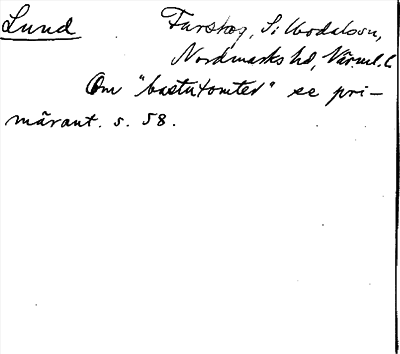 Lund Furskog, Silbodals sn,
Nordmarks hd, Värml. l
Om "bastutomter" se pri-
märant. s. 58.